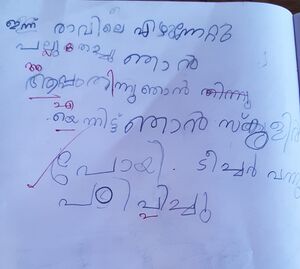 ഇന്ന് രാവിലെ എഴുന്നേറ്റു
പല്ലു തേച്ചു ഞാൻ
തിന്നു ഞാൻ തിന്നു
യെന്നിട്ട് ഞാൻ സ്കൂളിൽ
പോയി. ടീച്ചർ വന്നു
പഠിപ്പിച്ചു